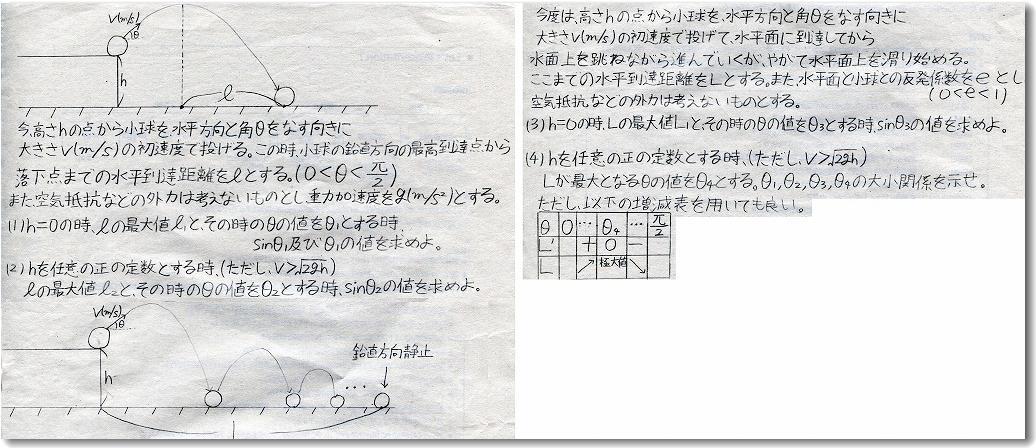 V(m/s)
θ
h
l
今、高さhの点から小球を水平方向と角θをなす向きに
大きさV(m/s)の初速度で投げる。この時、小球の鉛直方向の最高到達点から
落下点までの水平到達距離をlとする。(0<θ<π/2)
また空気抵抗などの外力は考えないものとし、重力加速度をg(m/s²)とする。
(1) h=0の時、lの最大値l₁と、その時のθの値をθ₁とする時、
sinθ₁及びθ₁の値を求めよ。
(2) hを任意の正の定数とする時、(ただし、V>√2gh)
lの最大値l₂と、その時のθの値をθ₂とする時、sinθ₂の値を求めよ。
V(m/s)
θ
h
鉛直方向静止
...
L
今度は、高さhの点から小球を、水平方向と角θをなす向きに
大きさV(m/s)の初速度で投げて、水平面に到達してから
水面上を跳ねながら進んでいくが、やがて水平面上を滑り始める。
ここまでの水平到達距離をLとする。また、水平面と小球との反発係数をeとし
(0<e<1)
空気抵抗などの外力は考えないものとする。
(3) h=0の時、Lの最大値L₁と、その時のθの値をθ₃とする時、sinθ₃の値を求めよ。
(4) hを任意の正の定数とする時、(ただし、V>√2gh)
Lが最大となるθの値をθ₄とする。θ₁,θ₂,θ₃,θ₄の大小関係を示せ。
ただし、以下の増減表を用いても良い。
θ 0 … θ₄ … π/2
L' + 0 −
L ↗ 極大値 ↘